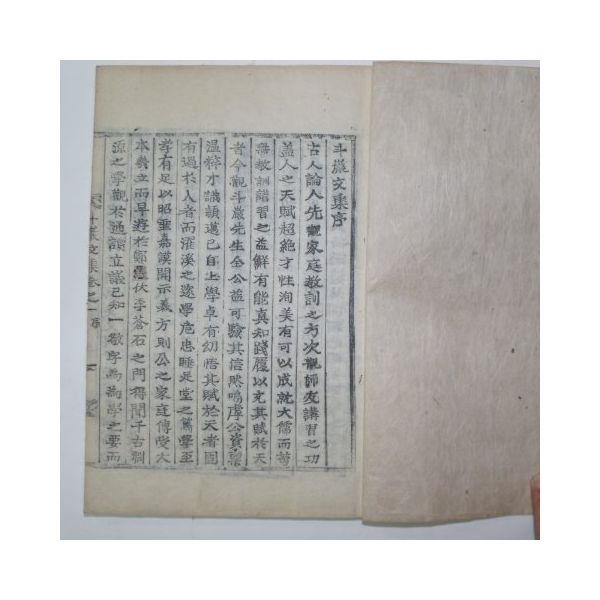 斗巖文集序
古人論人先觀家庭敎訓之方次觀師友講習之功
盖人之天賦超絶才性洵美有可以成就大儒而苟
無敎訓講習之益鮮有能真知踐履以充其賦於天
者今觀斗巖先生全公益可驗其信然嗚虖公資稟
温粹才識穎邁已自上學卓有幼悟其賦於天者固
有過於人者而濯溪之邃學忘患睡是堂之篤學至
孝有足以昭垂嘉謨開示義方則公之家庭傳受大
本㡬立而早遊於鄭愚伏李蒼石之門得聞千古淵
源之學觀於通讀立議已知一敬字為為學之要而
斗巖文集卷之一序